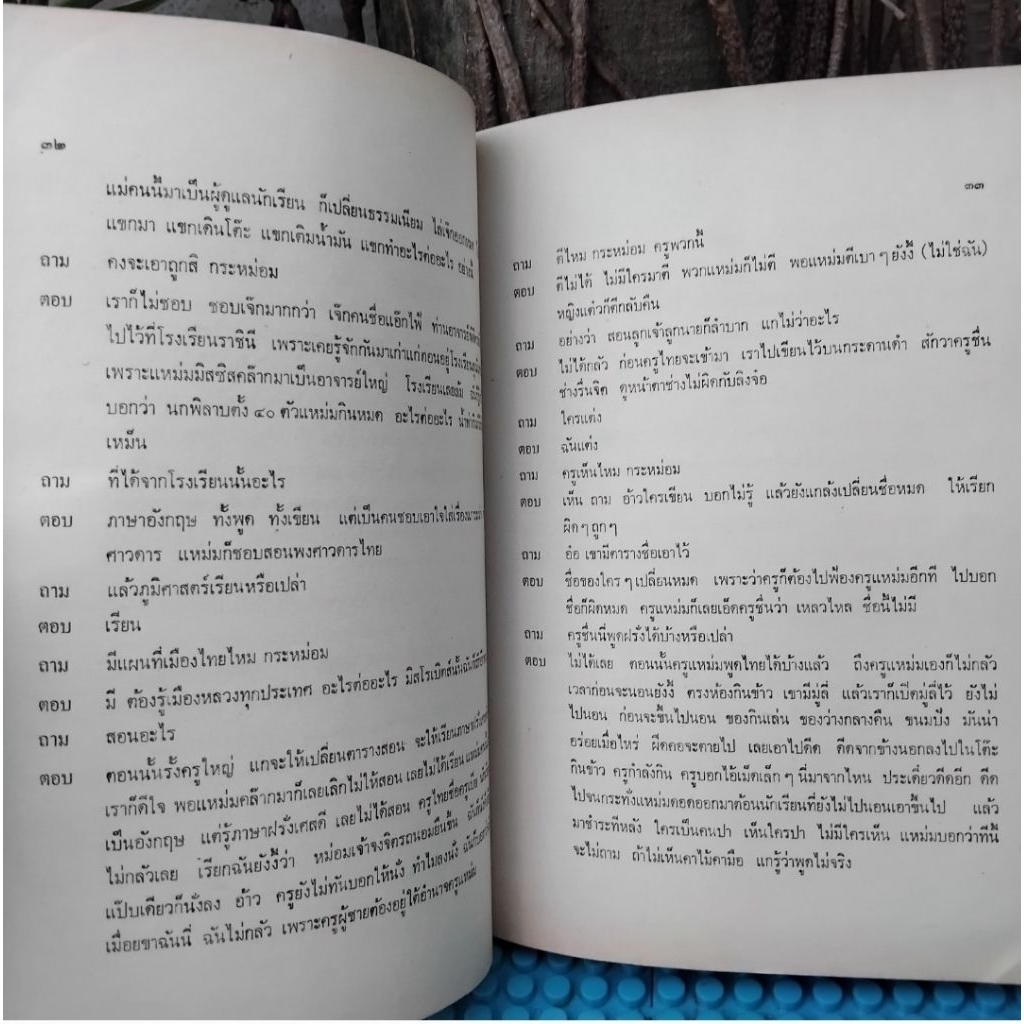 ๓๒
แม่คนนี้มาเป็นผู้ดูแลนักเรียน ก็เปลี่ยนธรรมเนียม ไล่เจ๊กออกหมด
แขกมา แขกเดินโต๊ะ แขกเติมน้ำมัน แขกทำอะไรต่ออะไร อย่างนี้
ถาม คงจะเอาถูกสิ กระหม่อม
ตอบ เราก็ไม่ชอบ ชอบเจ๊กมากกว่า เจ๊กคนชื่อแอ๊กไฟ้ ท่านอาจารย์
ไปไว้ที่โรงเรียนราชินี เพราะเคยรู้จักกันมาเก่าแก่ตอนอยู่โรงเรียน
เพราะแหม่มมิสซิสคล๊ากมาเป็นอาจารย์ใหญ่ โรงเรียนเลยล้ม
บอกว่า นกพิลาบตั้ง ๔๐ ตัวแหม่มกินหมด อะไรต่ออะไร
เหม็น
ถาม ที่ได้จากโรงเรียนนั้นอะไร
ตอบ ภาษาอังกฤษ ทั้งพูด ทั้งเขียน แต่เป็นคนชอบเอาใจใส่เรื่อง
ศาวดาร แหม่มก็ชอบสอนพงศาวดารไทย
ถาม แล้วภูมิศาสตร์เรียนหรือเปล่า
ตอบ เรียน
ถาม มีแผนที่เมืองไทยไหม กระหม่อม
ตอบ มี ต้องรู้เมืองหลวงทุกประเทศ อะไรต่ออะไร มิสโรเบิตส์นั้น
ถาม สอนอะไร
ตอบ ตอนนั้นรั้งครูใหญ่ แกจะให้เปลี่ยนตารางสอน จะให้เรียนภาษา
เราก็ดีใจ พอแหม่มคล๊ากมาก็เลยเลิกไม่ให้สอน เลยไม่ได้เรียน
เป็นอังกฤษ แต่รู้ภาษาฝรั่งเศสดี เลยไม่ได้สอน ครูไทยชื่อครูเปีย
ไม่กลัวเลย เรียกฉันยังงี้ว่า หม่อมเจ้าจงจิตรถนอมยืนขึ้น
แป๊บเดียวก็นั่งลง อ้าว ครูยังไม่ทันบอกให้นั่ง ทำไมลงนั่ง ฉันก็บอก
เมื่อยขาฉันนี่ ฉันไม่กลัว เพราะครูผู้ชายต้องอยู่ใต้อำนาจครูแหม่ม
๓๓
ถาม ตีไหม กระหม่อม ครูพวกนี้
ตอบ ตีไม่ได้ ไม่มีใครมาตี พวกแหม่มก็ไม่ตี พอแหม่มตีเบา ๆ ยังงี้ (ไม่ใช่ฉัน)
หญิงแต๋วก็ตีกลับคืน
ถาม อย่างว่า สอนลูกเจ้าลูกนายก็ลำบาก แกไม่ว่าอะไร
ตอบ ไม่ได้กลัว ก่อนครูไทยจะเข้ามา เราไปเขียนไว้บนกระดานดำ สักวาครูชื่น
ช่างรื่นจิต ดูหน้าตาช่างไม่ผิดกับลิงจ๋อ
ถาม ใครแต่ง
ตอบ ฉันแต่ง
ถาม ครูเห็นไหม กระหม่อม
ตอบ เห็น ถาม อ้าวใครเขียน บอกไม่รู้ แล้วยังแกล้งเปลี่ยนชื่อหมด ให้เรียก
ผิด ๆ ถูก ๆ
ถาม อ๋อ เขามีตารางชื่อเอาไว้
ตอบ ชื่อของใคร ๆ เปลี่ยนหมด เพราะว่าครูก็ต้องไปฟ้องครูแหม่มอีกที ไปบอก
ชื่อก็ผิดหมด ครูแหม่มก็เลยเอ็ดครูชื่นว่า เหลวไหล ชื่อนี้ไม่มี
ถาม ครูชื่นนี่พูดฝรั่งได้บ้างหรือเปล่า
ตอบ ไม่ได้เลย ตอนนั้นครูแหม่มพูดไทยได้บ้างแล้ว ถึงครูแหม่มเองก็ไม่กลัว
เวลาก่อนจะนอนยังงี้ ตรงห้องกินข้าว เขามีมู่ลี่ แล้วเราก็เปิดมู่ลี่ไว้ ยังไม่
ไปนอน ก่อนจะขึ้นไปนอน ของกินเล่น ของว่างกลางคืน ขนมปัง มันน่า
อร่อยเมื่อไหร่ ฝืดคอจะตายไป เลยเอาไปดีด ดีดจากข้างนอกลงไปในโต๊ะ
กินข้าว ครูกำลังกิน ครูบอกไอ้เม็ดเล็ก ๆ นี่มาจากไหน ประเดี๋ยวดีดอีก ดีด
ไปจนกระทั่งแหม่มดอดออกมาต้อนนักเรียนที่ยังไม่ไปนอนเอาขึ้นไป แล้ว
มาชำระทีหลัง ใครเป็นคนปา เห็นใครปา ไม่มีใครเห็น แหม่มบอกว่าทีนี้
จะไม่ถาม ถ้าไม่เห็นคาไม้คามือ แกรู้ว่าพูดไม่จริง